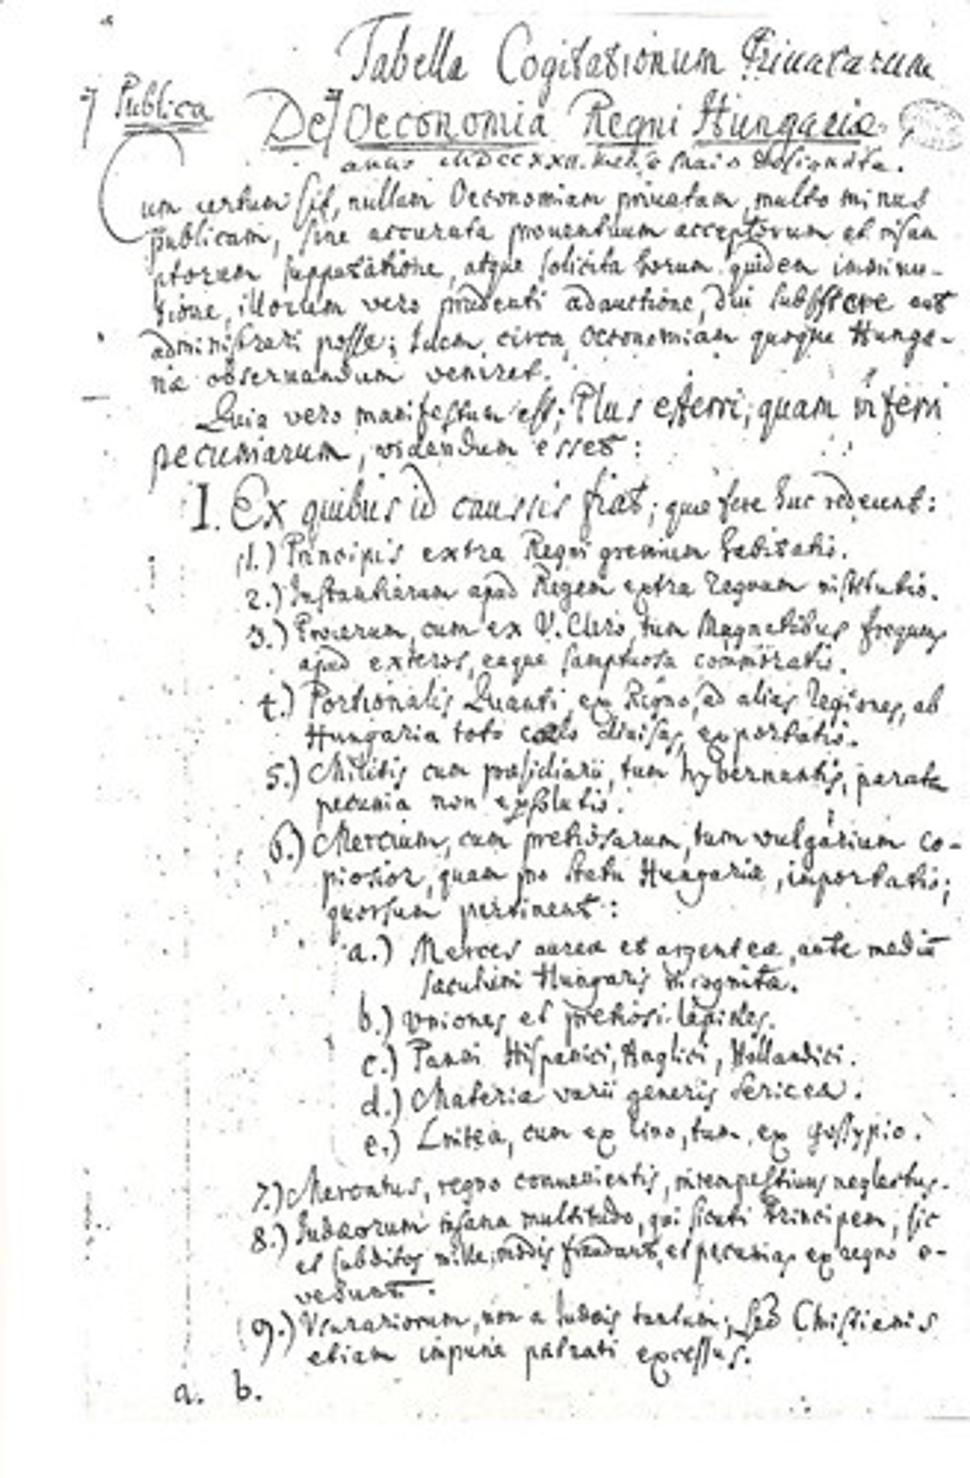 Tabella Cogitationum Privatarum
Publica
De Oeconomia Regni Hungariæ
anno MDCCXXII.
Cum certum sit, nullam Oeconomiam privatam, multo minus
publicam, sine accurata proventuum acceptorum et
supputatione, atque solicita horum quidem imminu-
tione, illorum vero prudenti adauctione, diu subsistere aut
administrari posse; Idem circa Oeconomiam quoque Hunga-
riæ observandum veniret.
Quia vero manifestum est; Plus efferri; quam inferri
pecuniarum, videndum esset:
I. Ex quibus id caussis fiat; quæ fere huc redeunt:
1.) Principis extra Regni gremium habitatio.
2.) Instantiarum apud Regem extra regnum institutio.
3.) Procerum, cum ex V. Clero, tum Magnatibus frequens
apud exteros, eaque sumptuosa commoratio.
4.) Portionalis Quanti, ex Regno, ad alias regiones, ab
Hungaria toto cælo divisas, exportatio.
5.) Militis cum præsidiarii, tum hybernantis, parata
pecunia non exsolutio.
6.) Mercium, cum pretiosarum, tum vulgarium co-
piosior, quam pro statu Hungariæ, importatio;
quorsum pertinent:
a.) Merces aureæ et argenteæ, ante mediū
sæculum Hungaris incognitæ.
b.) Uniones et pretiosi lapides.
c.) Panni Hispanici, Anglici, Hollandici.
d.) Materiæ varii generis sericeæ.
e.) Lintea, cum ex lino, tum ex gossypio.
7.) Mercatus, regno convenientis, intempestivus neglectus.
8.) Iudæorum insana multitudo, qui sicuti Principem, sic
et subditos mille modis fraudant, et pecunias ex regno e-
vehunt.
9.) Usurariorum, non a Iudæis tantum; sed Christianis
etiam impune patrati excessus.
a. b.